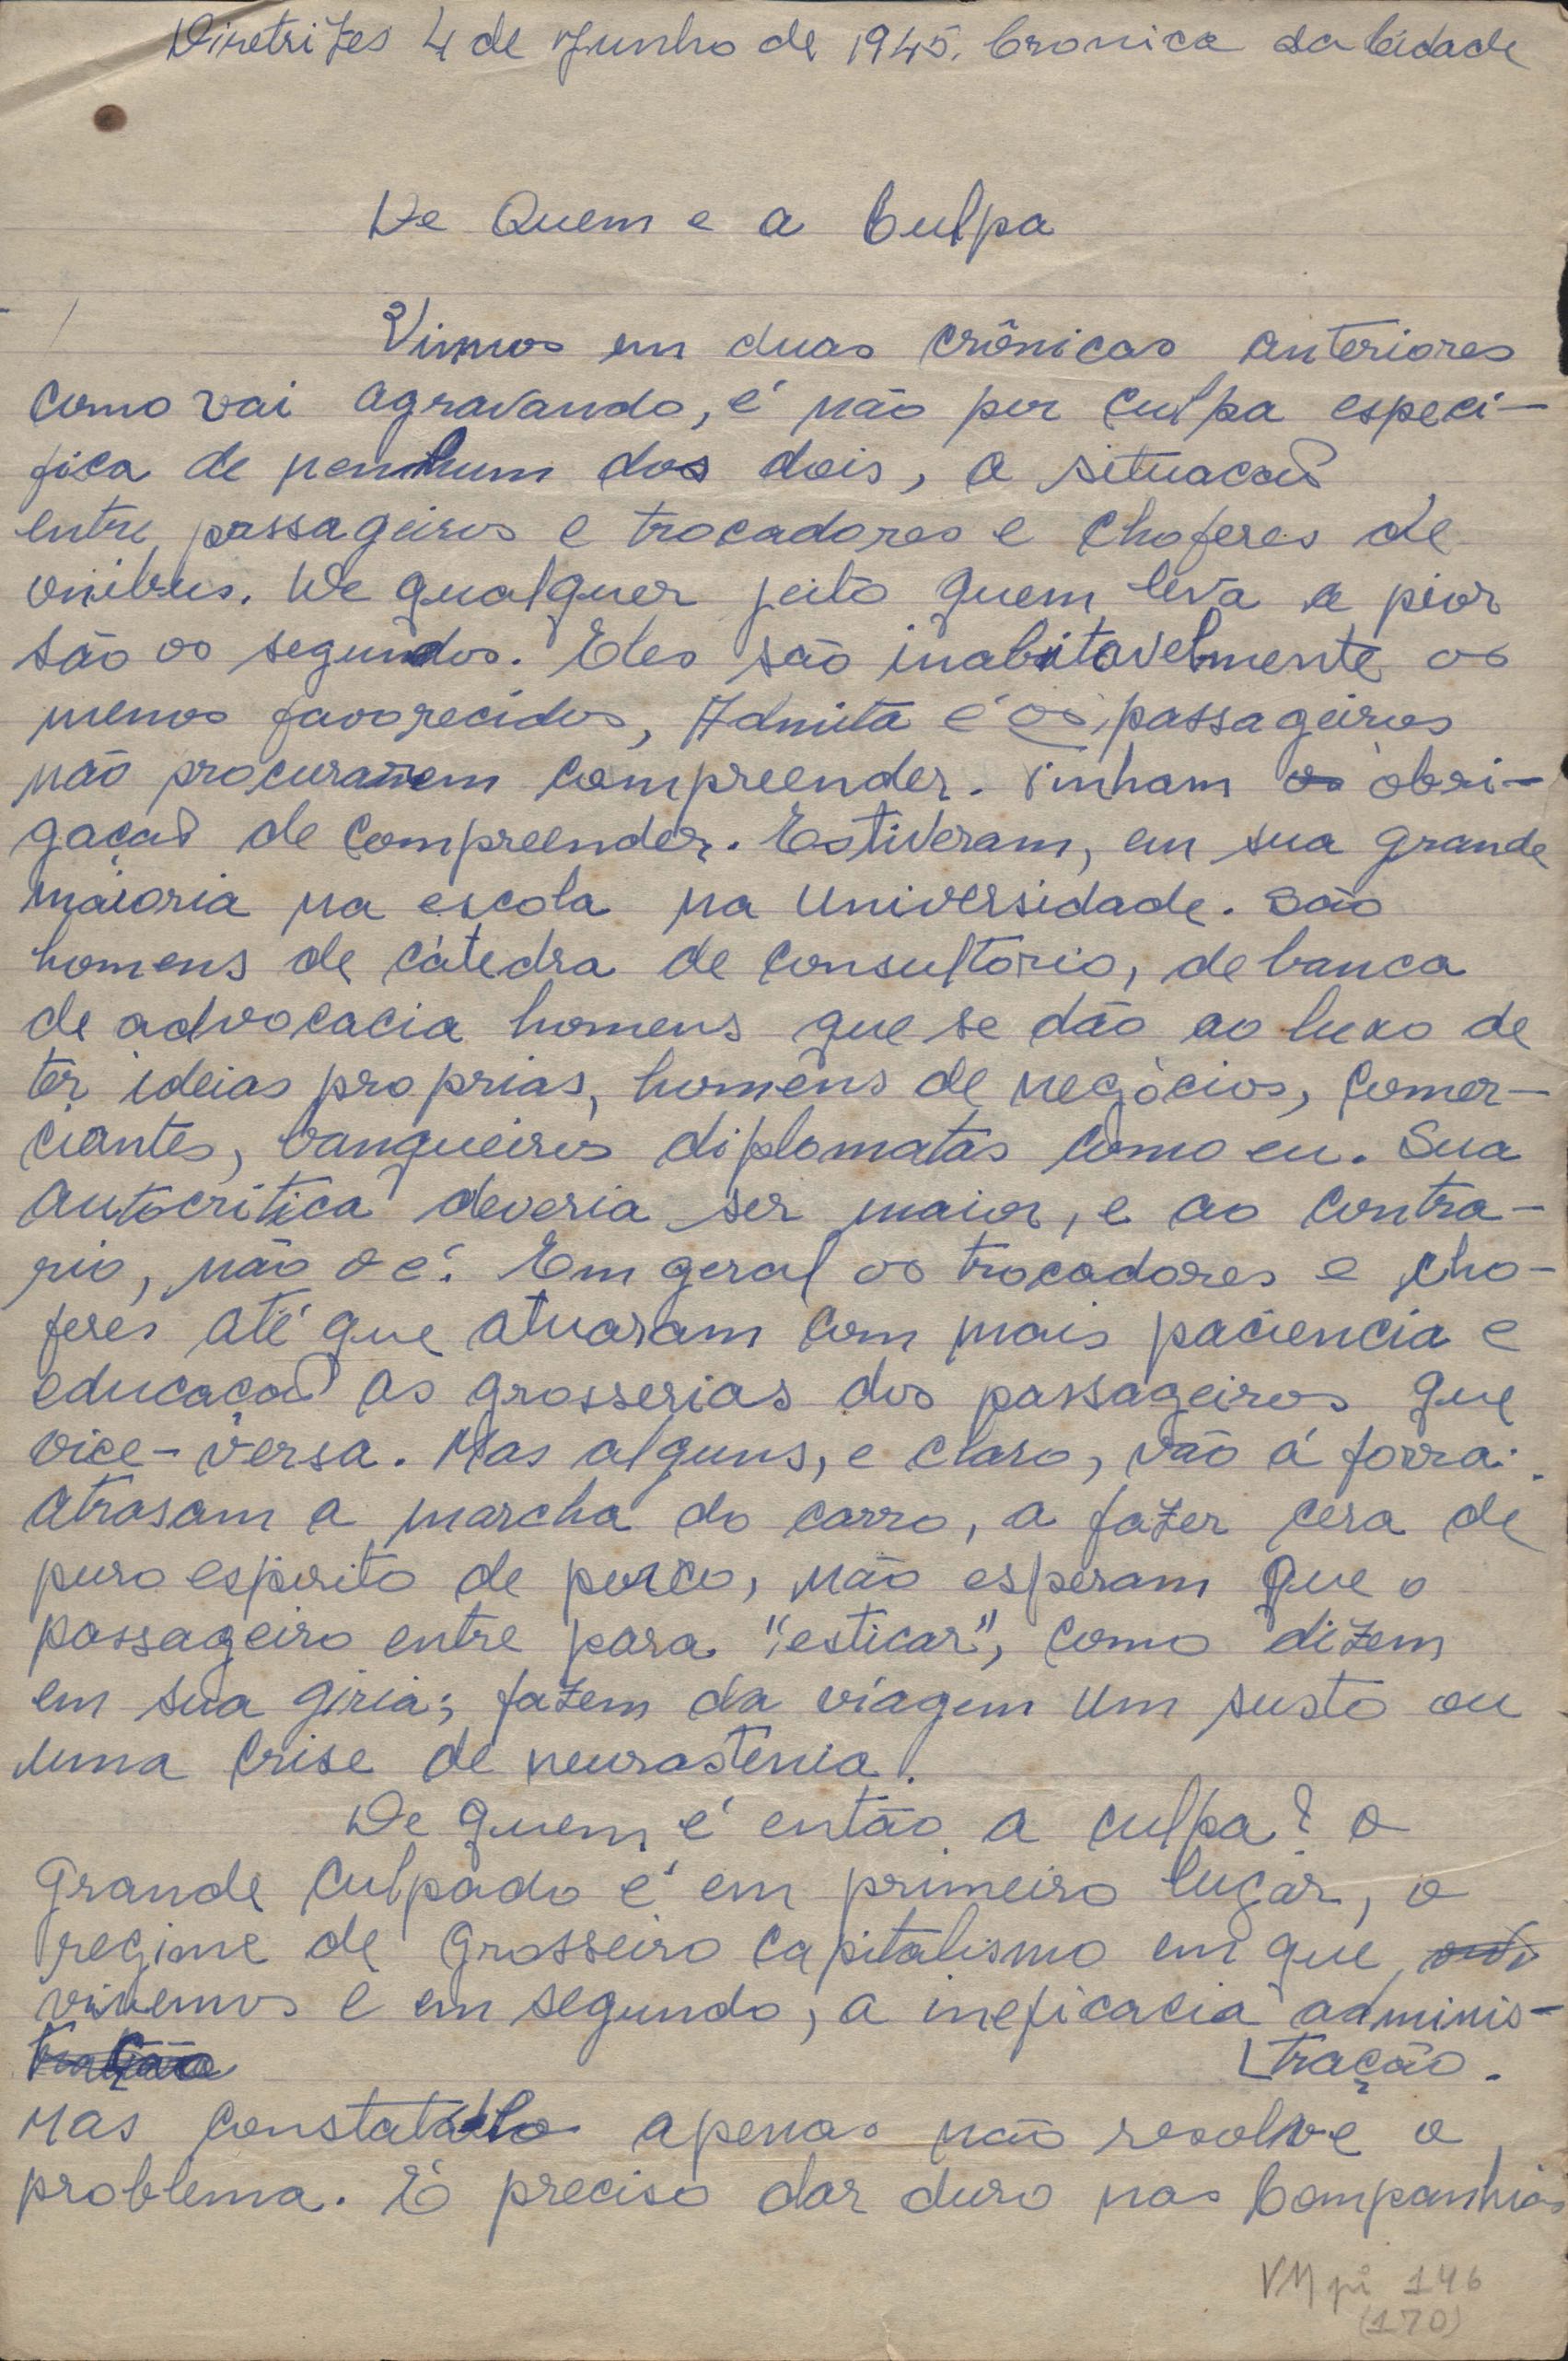 Diretrizes 4 de Junho de 1945. Cronica da Cidade
De Quem e a Culpa
Vimos em duas crônicas anteriores
como vai agravando, é não por culpa especi-
fica de nenhum dos dois, a situacaõ
entre passageiros e trocadores e choferes de
onibus. De qualquer jeito quem leva a pior
são os segundos. Eles são inabitavelmente os
menos favorecidos, Admita é os passageiros
não procurarem compreender. Tinham obri-
gaçaõ de compreender. Estiveram, em sua grande
maioria na escola na Universidade. São
homens de cátedra de consultorio, de banca
de advocacia homens que se dão ao luxo de
ter ideias proprias, homens de negócios, comer-
ciantes, banqueiros diplomatas como eu. Sua
autocritica deveria ser maior, e ao contra-
rio, não o é. Em geral os trocadores e cho-
feres até que atuaram com mais paciencia e
educaçaõ as grosserias dos passageiros que
vice-versa. Mas alguns, e claro, vão á forra:
atrasam a marcha do carro, a fazer cera de
puro espirito de porco, não esperam que o
passageiro entre para "esticar", como dizem
em sua giria; fazem da viagem um susto ou
uma crise de neurastenia.
De quem é então a culpa? O
grande culpado é em primeiro lugar, o
regime de grosseiro capitalismo em que
vivemos e em segundo, a ineficacia adminis-
tração
tração.
Mas constatá-lo apenas não resolve o
problema. É preciso dar duro nas Companhias
VMpi 146
(170)